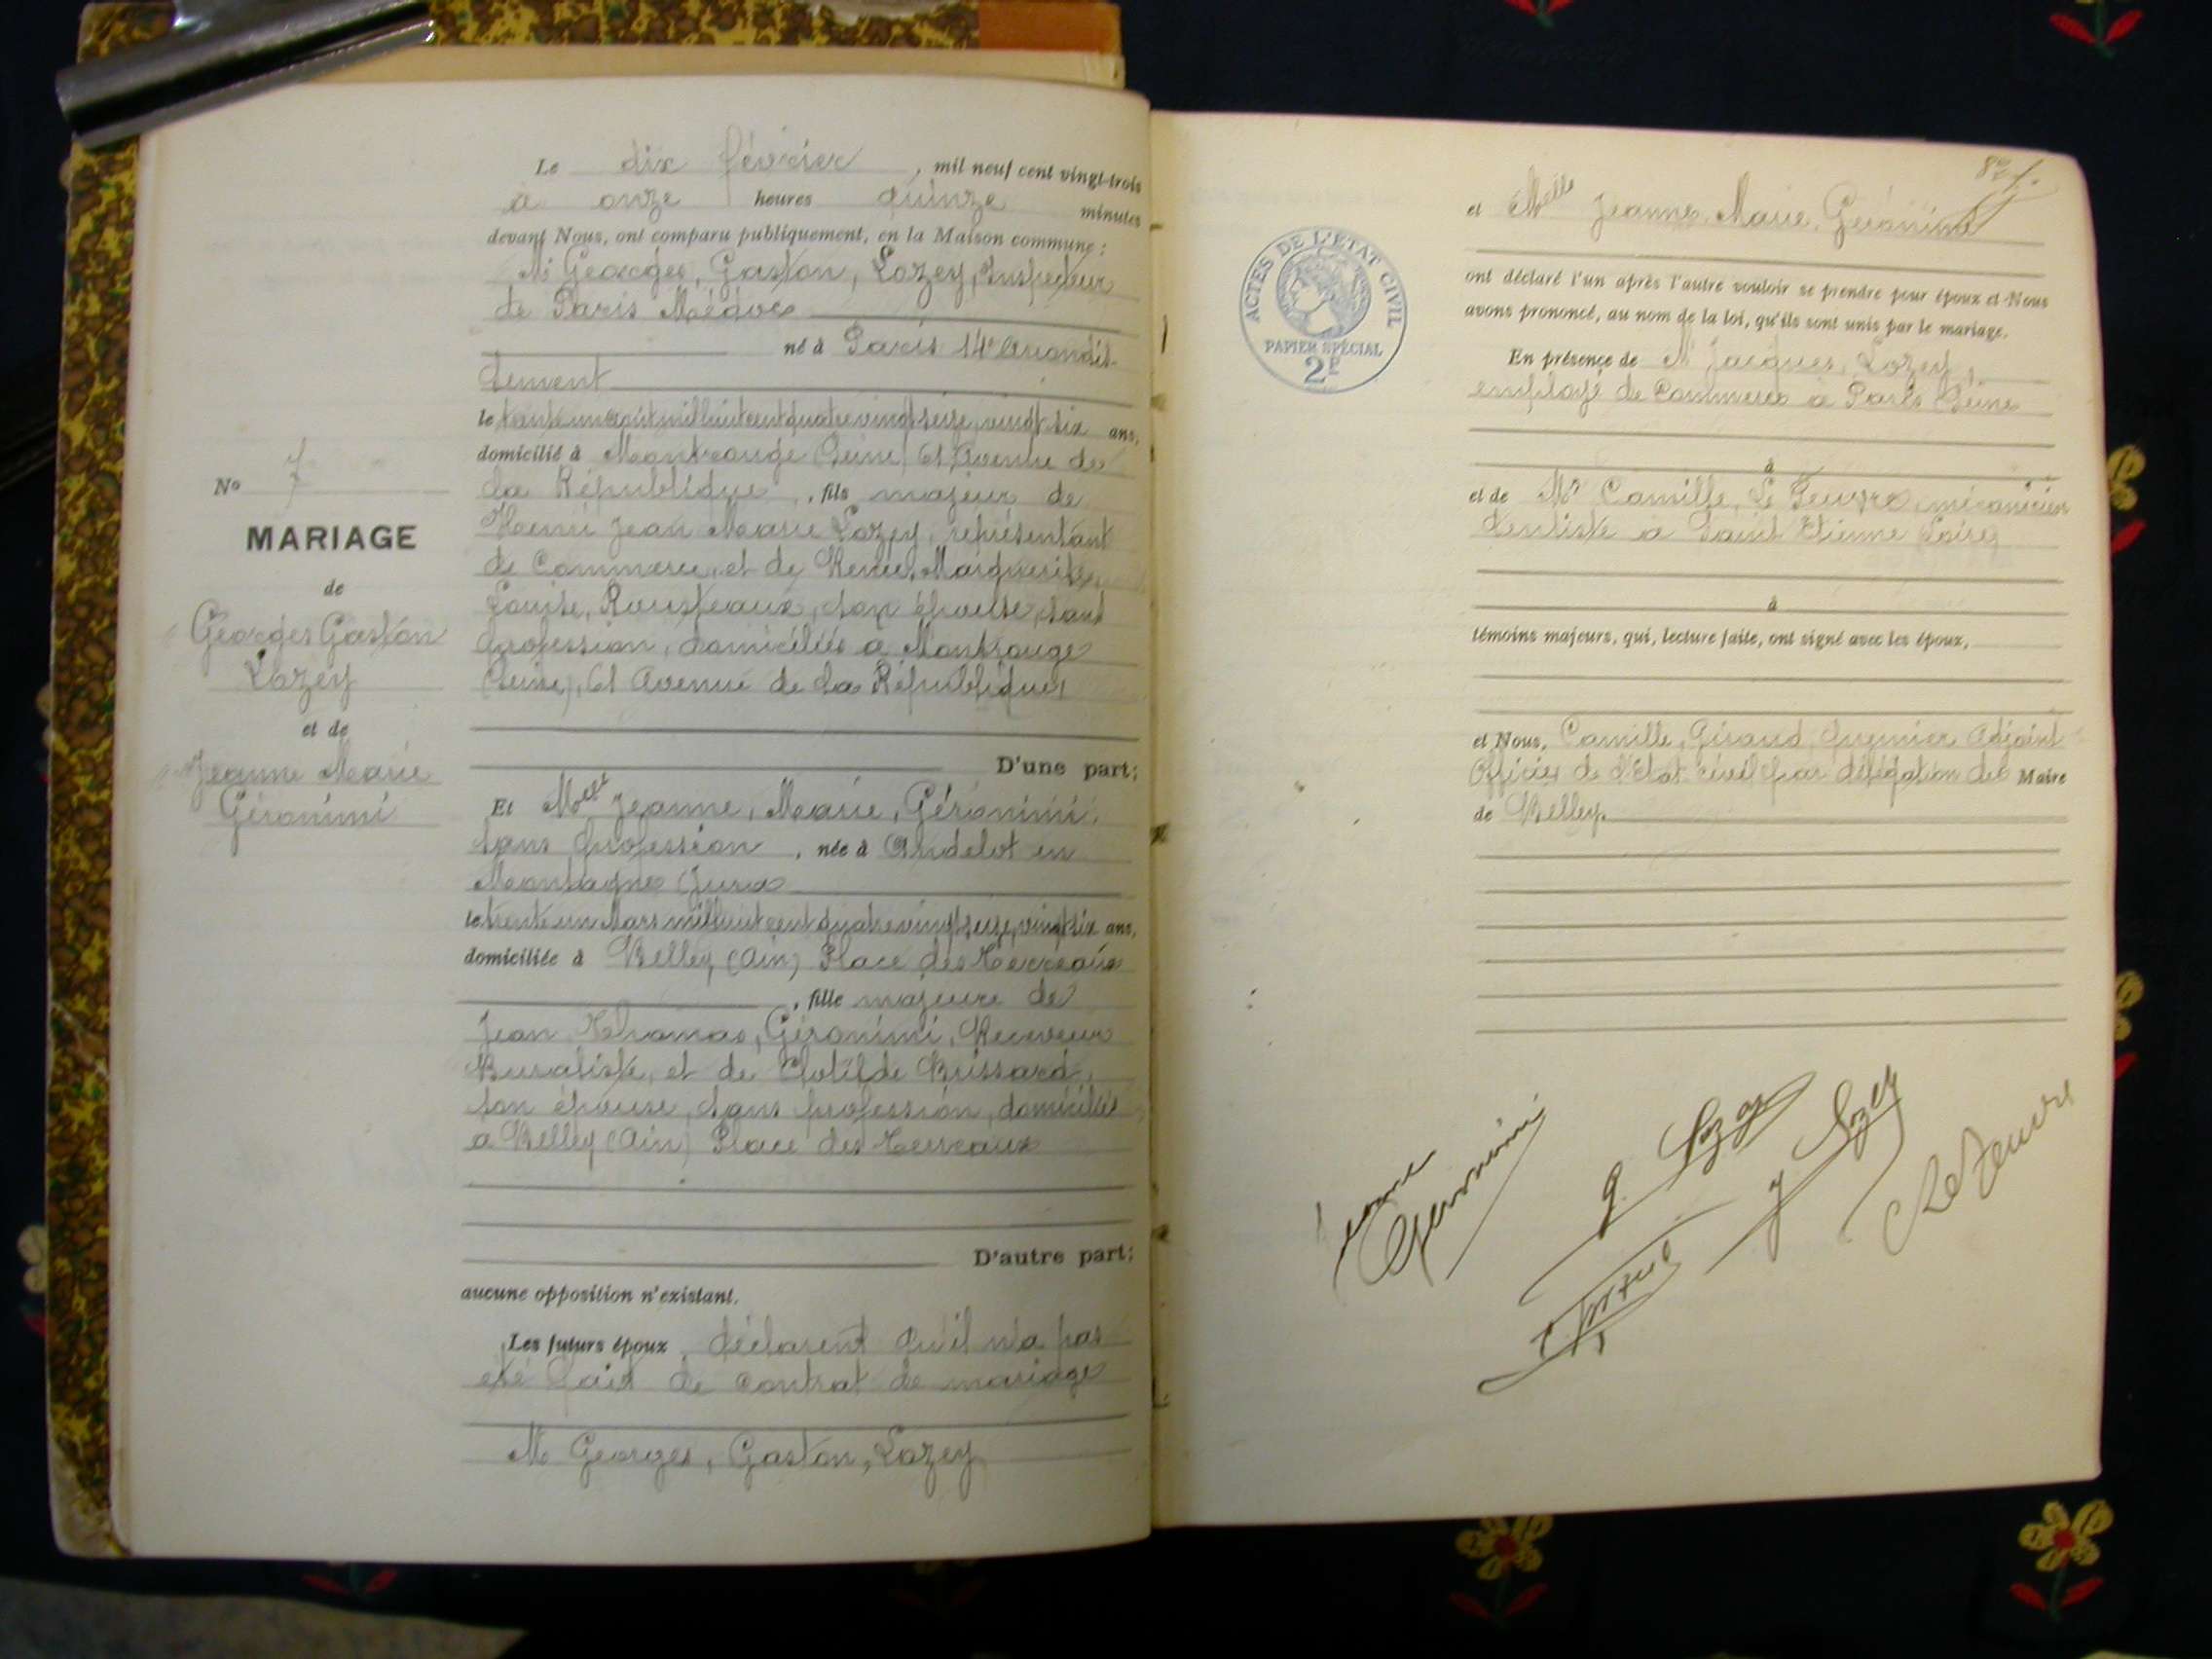 Le dix février, mil neuf cent vingt-trois
à onze heures quinze minutes
devant Nous, ont comparu publiquement, en la Maison commune :
Mr Georges, Gaston, Lozey, Inspecteur
de Paris Médoc
né à Paris 14e Arrondis-
sement
le trente un août mil huit cent quatre vingt seize, vingt six ans,
domicilié à Montrouge (Seine) 61 Avenue de
la République, fils majeur de
Henri Jean Marie Lozey, représentant
de Commerce, et de Renée, Marguerite,
Louise, Rousseaux, son épouse, sans
profession, domiciliés à Montrouge
(Seine), 61 Avenue de la République,
D'une part;
No 7
MARIAGE
de
Georges Gaston
Lozey
et de
Jeanne Marie
Géronimi
Et Melle Jeanne, Marie, Géronimi,
sans profession, née à Andelot en
Montagne (Jura
le trente un Mars mil huit cent quatre vingt seize, vingt six ans,
domiciliée à Belley (Ain) Place des Terreaux
, fille majeure de
Jean Thomas, Géronimi, Receveur
Buraliste, et de Clotilde Brissard,
son épouse, sans profession, domiciliés
à Belley (Ain) Place des Terreaux
D'autre part;
aucune opposition n'existant.
Les futurs époux déclarent qu'il n'a pas
été fait de contrat de mariage
Mr Georges, Gaston, Lozey
87
et Melle Jeanne, Marie, Géronimi
ont déclaré l'un après l'autre vouloir se prendre pour époux et Nous
avons prononcé, au nom de la loi, qu'ils sont unis par le mariage.
En présence de Mr Jacques, Lozey,
employé de Commerce à Paris Seine
à
et de Mr Camille, Le Feuvre, mécanicien
dentiste à Saint Etienne (Loire)
à
témoins majeurs, qui, lecture faite, ont signé avec les époux,
et Nous, Camille, Giraud, premier Adjoint
Officier de l'Etat civil par délégation du Maire
de Belley.
ACTES DE L'ETAT CIVIL
PAPIER SPÉCIAL
2F
Jeanne
Geronimi
G. Lozey
J Lozey
Le Feuvre